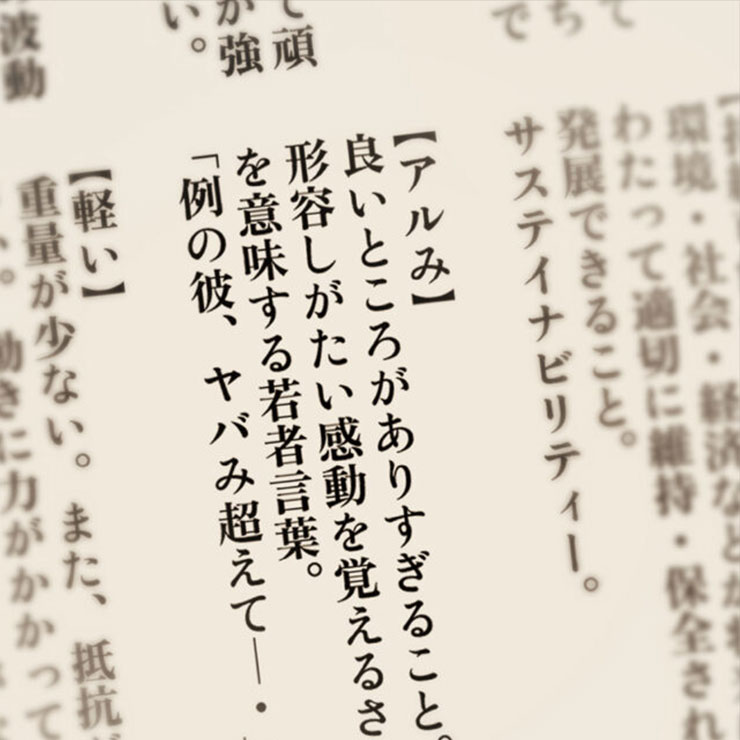 環境・社会・経済などが将
わたって適切に維持・保全され
発展できること。
サステイナビリティー。
【アルみ】
良いところがありすぎること。
形容しがたい感動を覚えるさ
を意味する若者言葉。
「例の彼、ヤバみ超えて―・
て頑
が強
い。
【軽い】
重量が少ない。また、抵抗が
動きに力がかかって
波動